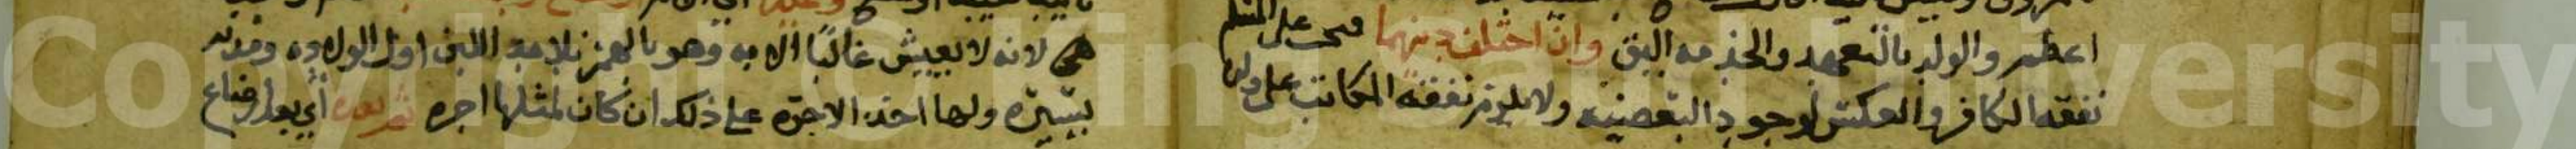 اعظم والولد بالتعهد والخدمه اليق وان اختلف دينهما فتجب على المسلم
نفقه الكافر والعكس لوجود البعضيه ولا يلزم نفقه المكاتب على ولده
هي لانه لا يعيش غالبًا الا به وهو بالهمز بلا مد اللبن اول الولاده ومدته
يسيره ولها اخذ الاجره على ذلك ان كان لمثلها اجره ثم بعده أي بعد ارضاع
Copyright © King Saud University